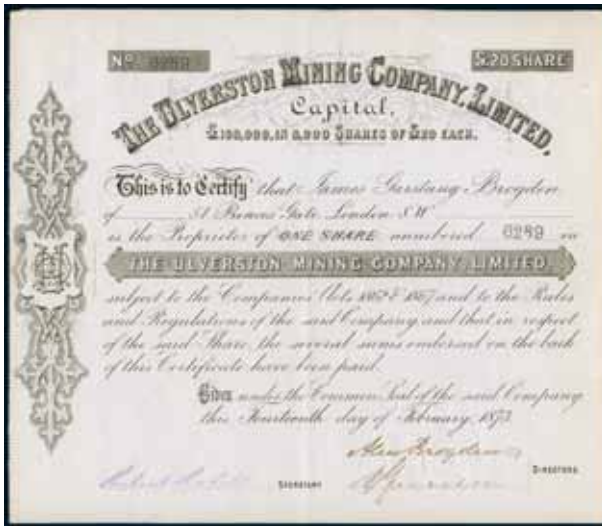 No. 6289 £20 SHARE
THE ULVERSTON MINING COMPANY, LIMITED.
Capital,
£160,000, IN 8,000 SHARES OF £20 EACH.
This is to Certify that James Garstang Brogden
of 31 Princes Gate London S W
is the Proprietor of ONE SHARE numbered 6289 in
THE ULVERSTON MINING COMPANY, LIMITED
subject to the Companies Acts 1862 & 1867 and to the Rules
and Regulations of the said Company and that in respect
of the said Share the several sums endorsed on the back
of this Certificate have been paid.
Given under the Common Seal of the said Company
this Fourteenth day of February, 1873
Alex Brogden
SECRETARY DIRECTORS